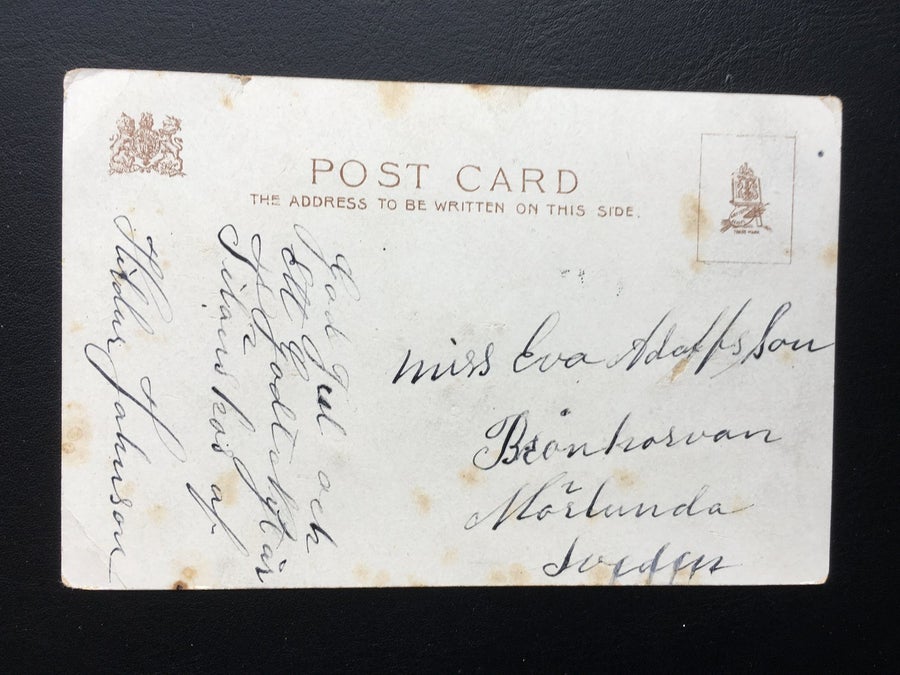 POST CARD
THE ADDRESS TO BE WRITTEN ON THIS SIDE.
TRADE MARK
God Jul och
Ett Godt nytt år
af
Hildur Johnson
Miss Eva Adolfsson
Mörlunda
Sweden